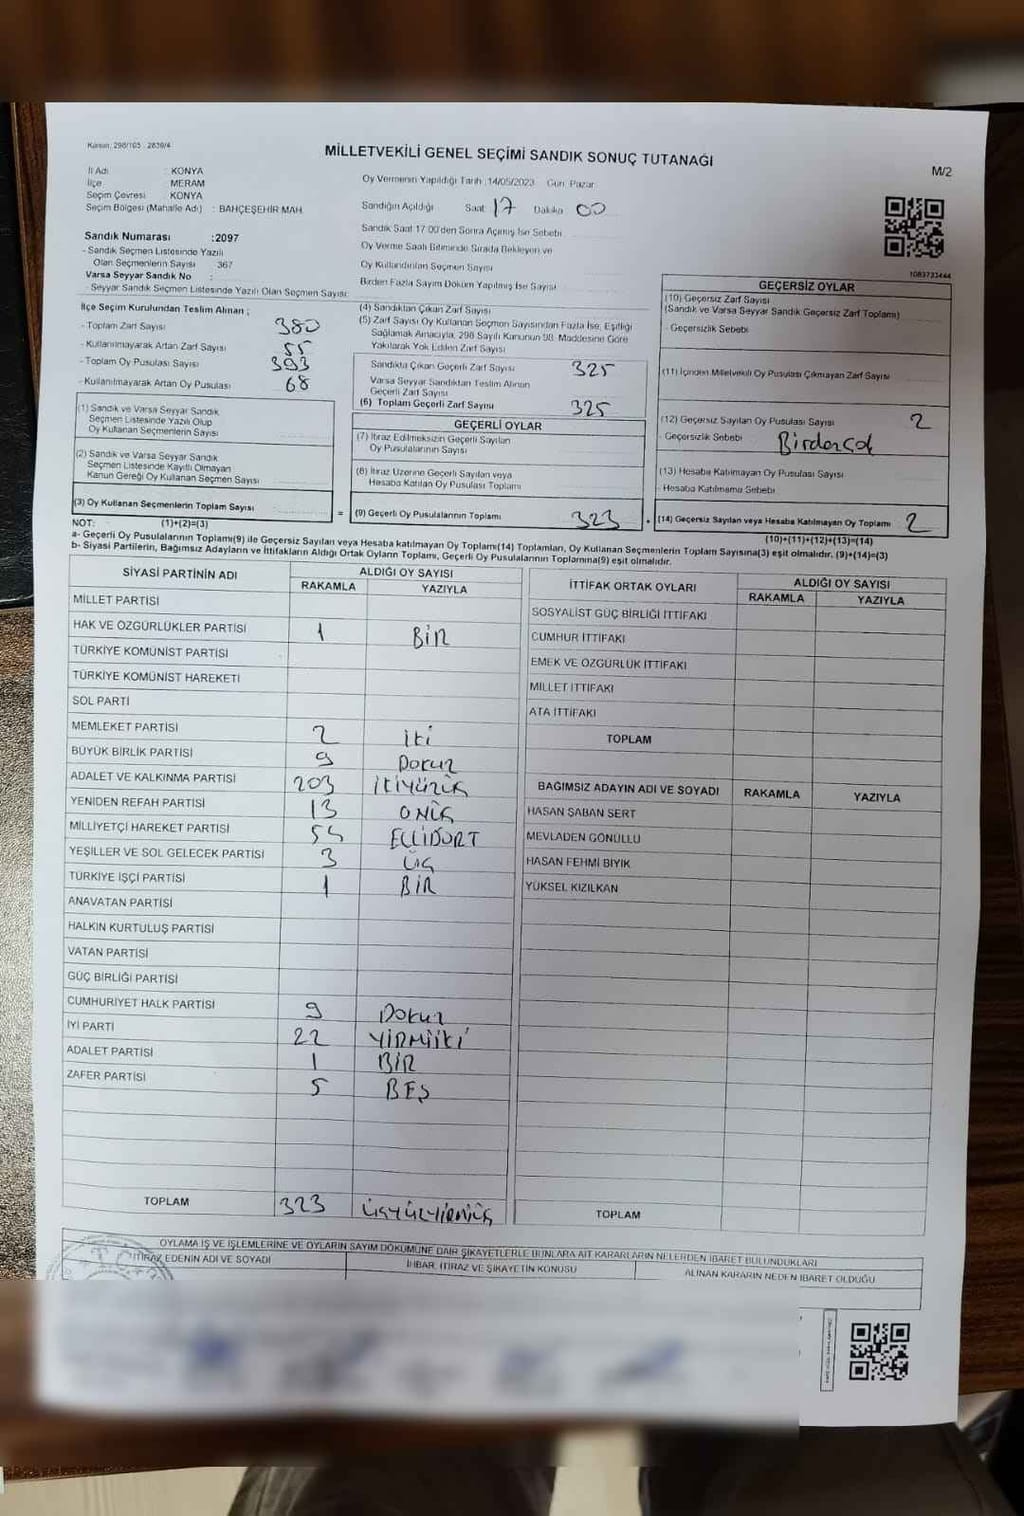 Kanun: 298/105 - 2839/4
MİLLETVEKİLİ GENEL SEÇİMİ SANDIK SONUÇ TUTANAĞI
M/2
İl Adı : KONYA
İlçe : MERAM
Seçim Çevresi : KONYA
Seçim Bölgesi (Mahalle Adı) : BAHÇEŞEHİR MAH.
Oy Vermenin Yapıldığı Tarih : 14/05/2023 Gün: Pazar
Sandığın Açıldığı Saat 17 Dakika 00
Sandık Saat 17.00'den Sonra Açılmış İse Sebebi
Oy Verme Saati Bitiminde Sırada Bekleyen ve
Oy Kullandırılan Seçmen Sayısı
Birden Fazla Sayım Döküm Yapılmış İse Sayısı
Sandık Numarası :2097
- Sandık Seçmen Listesinde Yazılı
Olan Seçmenlerin Sayısı 367
Varsa Seyyar Sandık No :
- Seyyar Sandık Seçmen Listesinde Yazılı Olan Seçmen Sayısı:
1083733444
İlçe Seçim Kurulundan Teslim Alınan ;
- Toplam Zarf Sayısı 380
- Kullanılmayarak Artan Zarf Sayısı 55
- Toplam Oy Pusulası Sayısı 393
- Kullanılmayarak Artan Oy Pusulası 68
(1) Sandık ve Varsa Seyyar Sandık
Seçmen Listesinde Yazılı Olup
Oy Kullanan Seçmenlerin Sayısı
(2) Sandık ve Varsa Seyyar Sandık
Seçmen Listesinde Kayıtlı Olmayan
Kanun Gereği Oy Kullanan Seçmen Sayısı
(3) Oy Kullanan Seçmenlerin Toplam Sayısı
(1)+(2)=(3)
(4) Sandıktan Çıkan Zarf Sayısı
(5) Zarf Sayısı Oy Kullanan Seçmen Sayısından Fazla İse, Eşitliği
Sağlamak Amacıyla, 298 Sayılı Kanunun 98. Maddesine Göre
Yakılarak Yok Edilen Zarf Sayısı
Sandıkta Çıkan Geçerli Zarf Sayısı 325
Varsa Seyyar Sandıktan Teslim Alınan
Geçerli Zarf Sayısı
(6) Toplam Geçerli Zarf Sayısı 325
GEÇERLİ OYLAR
(7) İtiraz Edilmeksizin Geçerli Sayılan
Oy Pusulalarının Sayısı
(8) İtiraz Üzerine Geçerli Sayılan veya
Hesaba Katılan Oy Pusulası Toplamı
= (9) Geçerli Oy Pusulalarının Toplamı 323
GEÇERSİZ OYLAR
(10) Geçersiz Zarf Sayısı
(Sandık ve Varsa Seyyar Sandık Geçersiz Zarf Toplamı)
- Geçersizlik Sebebi
(11) İçinden Milletvekili Oy Pusulası Çıkmayan Zarf Sayısı
(12) Geçersiz Sayılan Oy Pusulası Sayısı 2
- Geçersizlik Sebebi Birden çok
(13) Hesaba Katılmayan Oy Pusulası Sayısı
- Hesaba Katılmama Sebebi
+ (14) Geçersiz Sayılan veya Hesaba Katılmayan Oy Toplamı 2
(10)+(11)+(12)+(13)=(14)
NOT:
a- Geçerli Oy Pusulalarının Toplamı(9) ile Geçersiz Sayılan veya Hesaba katılmayan Oy Toplamı(14) Toplamları, Oy Kullanan Seçmenlerin Toplam Sayısına(3) eşit olmalıdır. (9)+(14)=(3)
b- Siyasi Partilerin, Bağımsız Adayların ve İttifakların Aldığı Ortak Oyların Toplamı, Geçerli Oy Pusulalarının Toplamına(9) eşit olmalıdır.
SİYASİ PARTİNİN ADI ALDIĞI OY SAYISI
RAKAMLA YAZIYLA
MİLLET PARTİSİ
HAK VE ÖZGÜRLÜKLER PARTİSİ 1 BİR
TÜRKİYE KOMÜNİST PARTİSİ
TÜRKİYE KOMÜNİST HAREKETİ
SOL PARTİ
MEMLEKET PARTİSİ 2 iki
BÜYÜK BİRLİK PARTİSİ 9 Dokuz
ADALET VE KALKINMA PARTİSİ 203 ikiyüzüç
YENİDEN REFAH PARTİSİ 13 ONÜÇ
MİLLİYETÇİ HAREKET PARTİSİ 54 ELLİDÖRT
YEŞİLLER VE SOL GELECEK PARTİSİ 3 ÜÇ
TÜRKİYE İŞÇİ PARTİSİ 1 BİR
ANAVATAN PARTİSİ
HALKIN KURTULUŞ PARTİSİ
VATAN PARTİSİ
GÜÇ BİRLİĞİ PARTİSİ
CUMHURİYET HALK PARTİSİ 9 Dokuz
İYİ PARTİ 22 YİRMİİKİ
ADALET PARTİSİ 1 BİR
ZAFER PARTİSİ 5 BEŞ
TOPLAM 323 üçyüzyirmiüç
İTTİFAK ORTAK OYLARI ALDIĞI OY SAYISI
RAKAMLA YAZIYLA
SOSYALİST GÜÇ BİRLİĞİ İTTİFAKI
CUMHUR İTTİFAKI
EMEK VE ÖZGÜRLÜK İTTİFAKI
MİLLET İTTİFAKI
ATA İTTİFAKI
TOPLAM
BAĞIMSIZ ADAYIN ADI VE SOYADI RAKAMLA YAZIYLA
HASAN ŞABAN SERT
MEVLADEN GÖNÜLLÜ
HASAN FEHMİ BIYIK
YÜKSEL KIZILKAN
TOPLAM
OYLAMA İŞ VE İŞLEMLERİNE VE OYLARIN SAYIM DÖKÜMÜNE DAİR ŞİKAYETLERLE BUNLARA AİT KARARLARIN NELERDEN İBARET BULUNDUKLARI
İTİRAZ EDENİN ADI VE SOYADI
İHBAR, İTİRAZ VE ŞİKAYETİN KONUSU
ALINAN KARARIN NEDEN İBARET OLDUĞU
T.C.